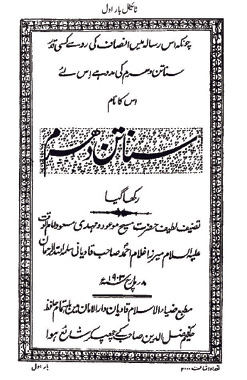 ٹائیٹل بار اول
چونکہ اس رسالہ میں انصاف کی رو سے کسی قدر
سناتن دھرم کی مدد ہے اس لئے
اس کا نام
سناتن دھرم
رکھا گیا
تصنیف لطیف حضرت مسیح موعود و مہدی مسعود امام وقت
علیہ السلام میرزا غلام احمد صاحب قادیانی سلمہ اللہ الرحمان
۸ مارچ ۱۹۰۳ء
مطبع ضیاء الاسلام قادیان دارالامان میں باہتمام
حکیم فضل الدین صاحب کے چھپ کر شائع ہوا
تعداد اشاعت ۲۰۰۰
بار اول